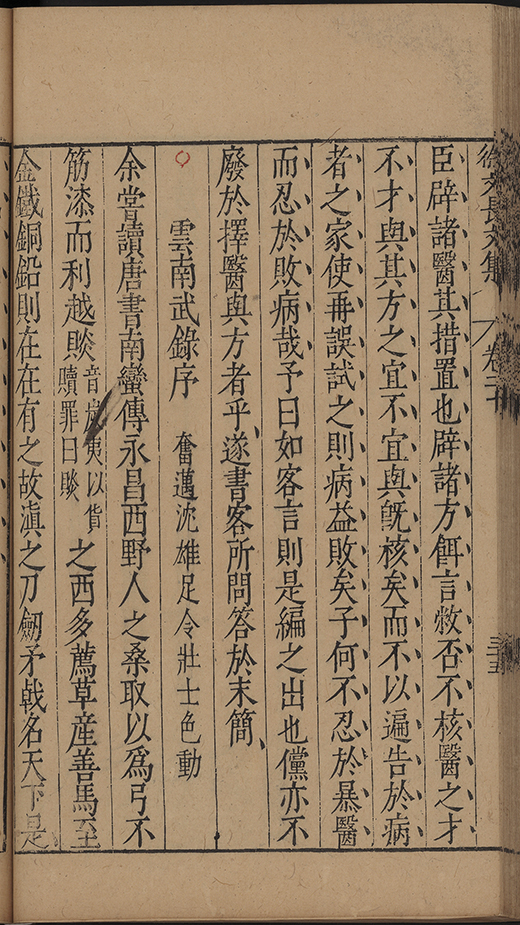 徐文長文集 卷二十 三五
臣辟諸醫其措置也辟諸方餌言敝否不核醫之才
不才與其方之宜不宜與旣核矣而不以遍告於病
者之家使再誤試之則病益敗矣子何不忍於暴醫
而忍於敗病哉予曰如客言則是編之出也儻亦不
廢於擇醫與方者乎遂書客所問答於末簡
雲南武錄序 奮邁沈雄足令壯士色動
余嘗讀唐書南蠻傳永昌西野人之桑取以爲弓不
筋漆而利越賧音夷以貨贖罪曰賧之西多薦草産善馬至
金鐵銅鉛則在在有之故滇之刀劒矛戟名天下是